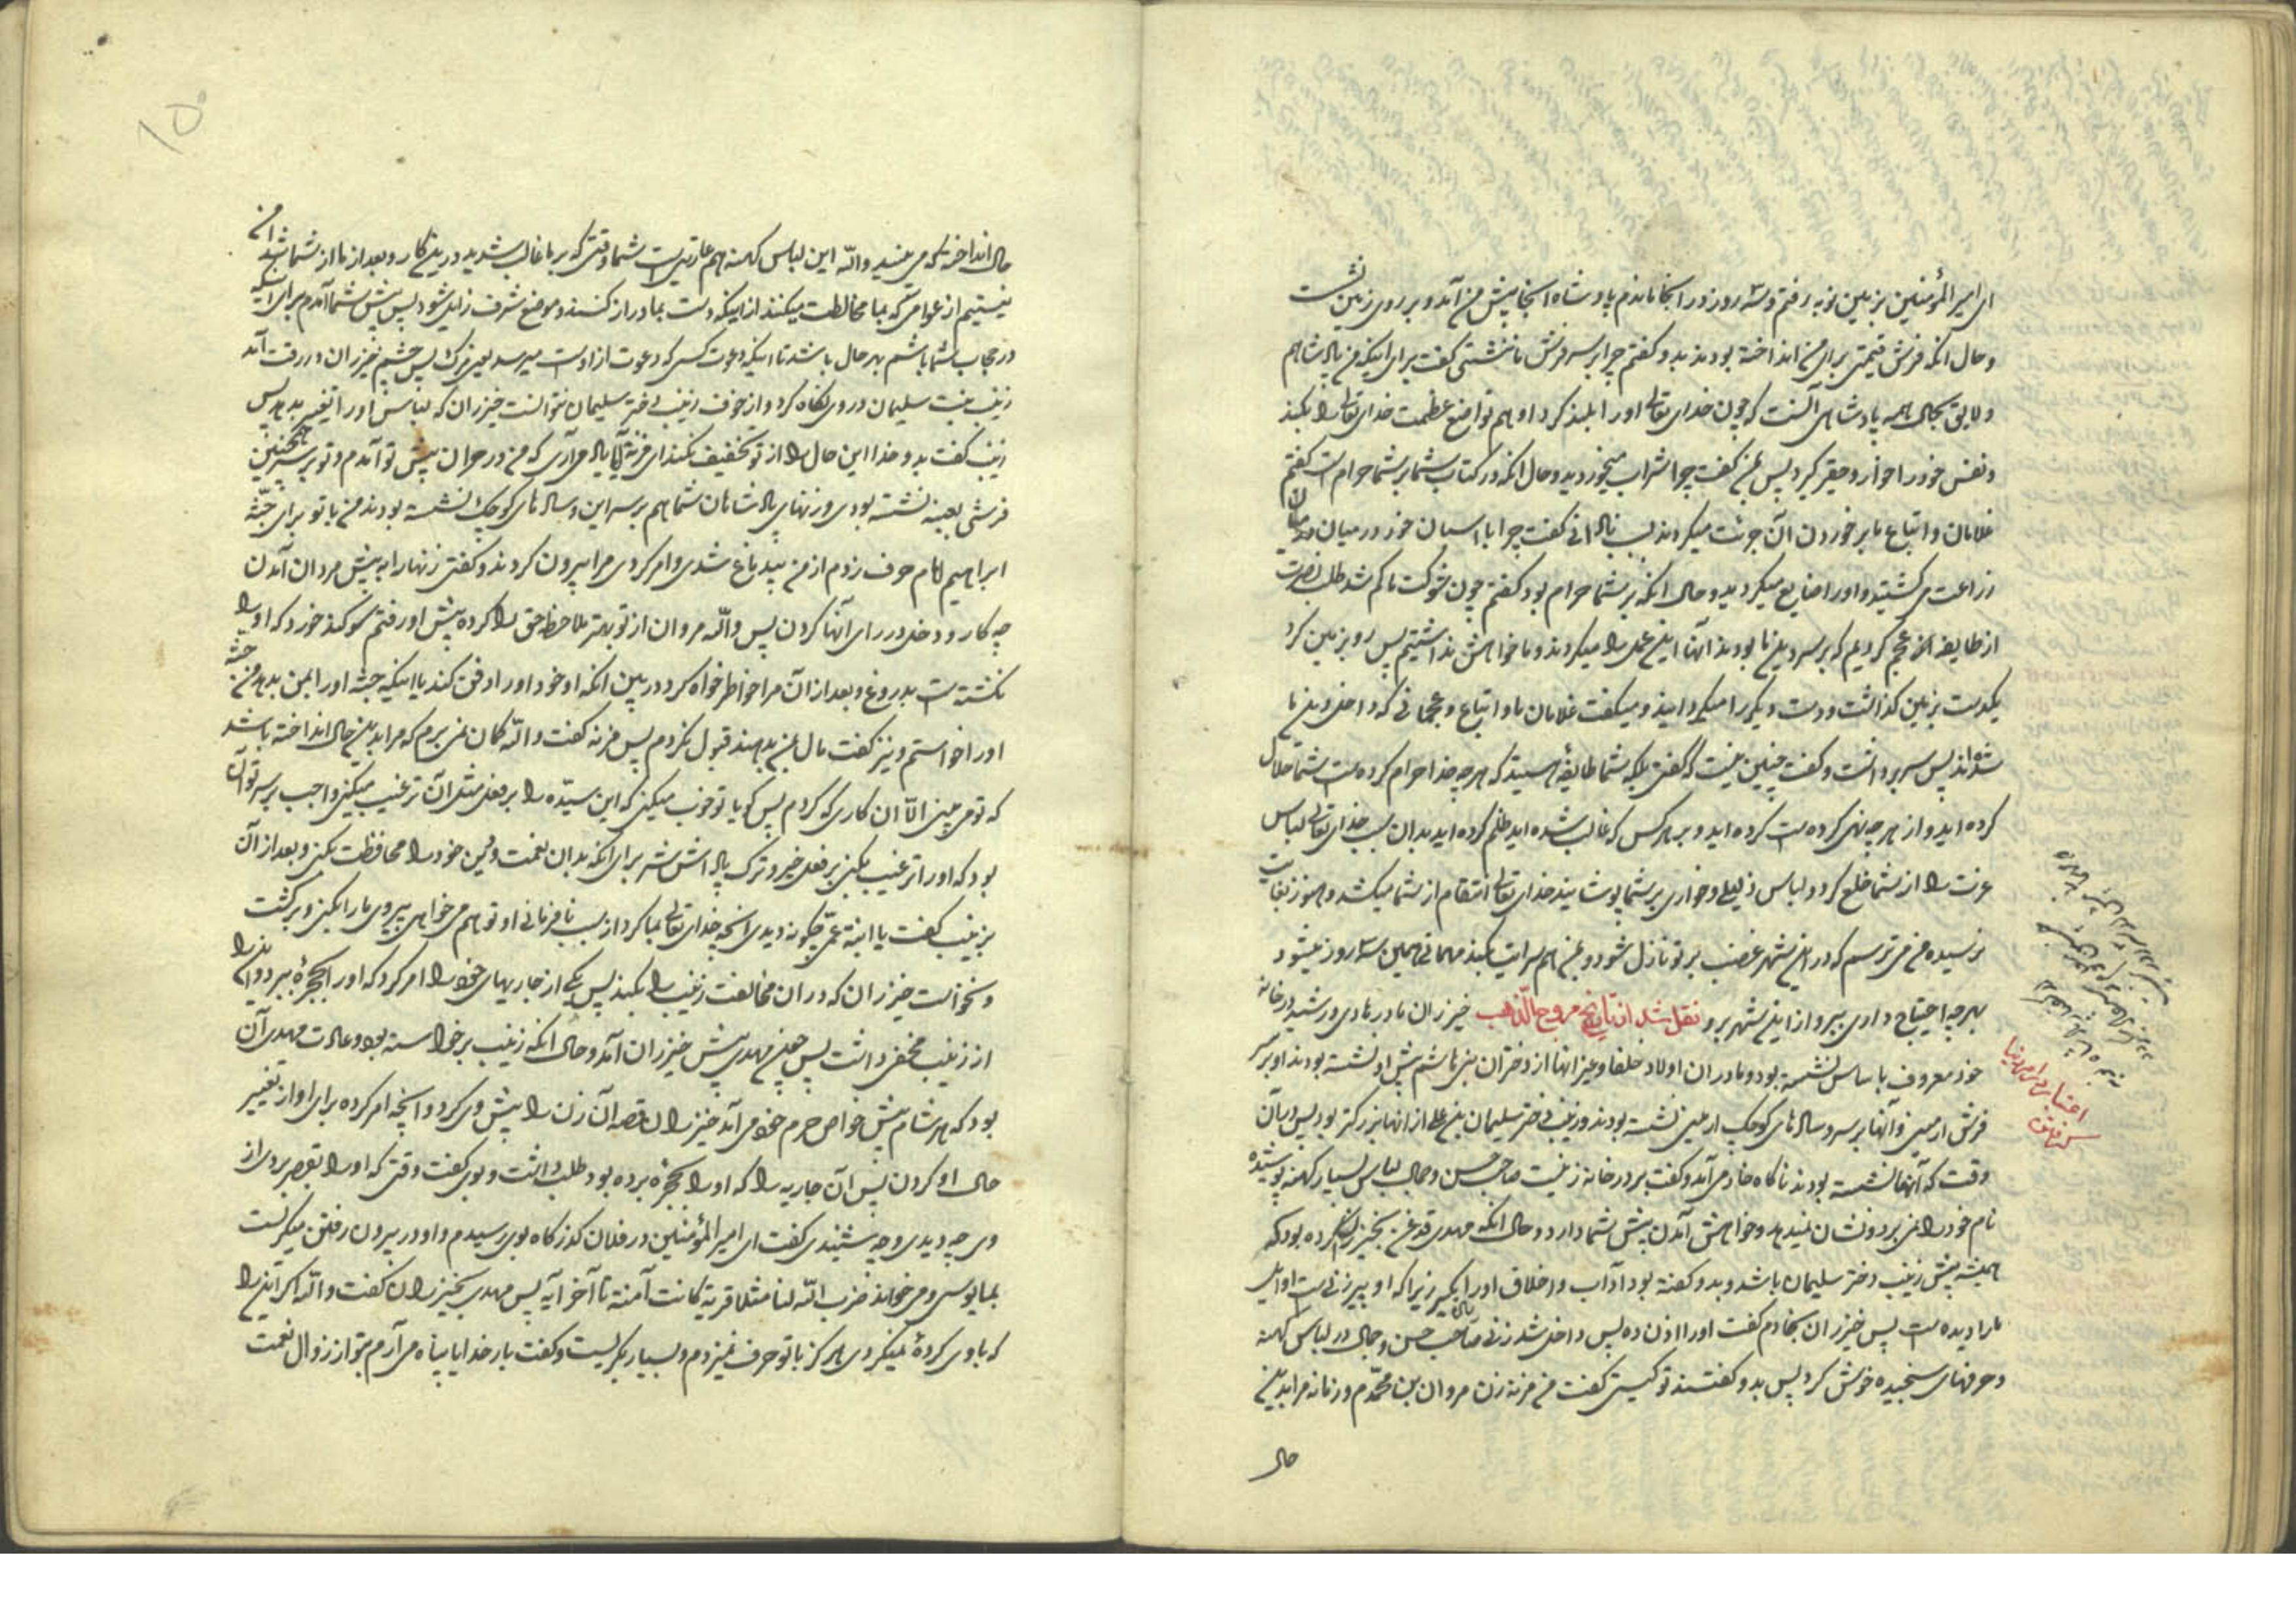 ای امیر المؤمنین بزمین نوبه رفتم و سه روز در انجا ماندم پادشاه انجا پیش من آمد و بر روی زمین نشست
و حال انکه فرش قیمتی برای من انداخته بودند بدو گفتم چرا بر سر فرش ما ننشستی گفت برای اینکه من پادشاهم
و لایق بحال همه پادشاهی آنست که چون خدای تعالی او را بلند کرد او هم تواضع عظمت خدای تعالی را بکند
و نفس خود را خوار و حقیر گیرد پس بمن گفت چرا شراب میخوردید و حال انکه در کتاب شما بر شما حرام است گفتم
غلامان و اتباع ما بر خوردن آن جرئت میکردند بسبب نادانی گفت چرا با اسبان خود در میان
زراعت می گشتید و او را ضایع میکردید و حال انکه بر شما حرام بود گفتم چون شوکت ما کم شد طلب نصرت
از طایفه عجم کردیم که بر سر دین ما بودند آنها این عمل را میکردند و ما خواهش نداشتیم پس رو بزمین کرد
یکدست بزمین گذاشت و دست دیگر را میگردانید و میگفت غلامان ما و اتباع و عجمانی که داخل دین ما
شده‌اند پس سر برداشت و گفت چنین نیست که گفتی بلکه شما طایفه هستید که هر چه خدا حرام کرده است شما حلال
کرده اید و از هر چه نهی کرده است کرده اید و بر هر کس که غالب شده اید ظلم کرده اید بدان سبب خدای تعالی لباس
عزت را از شما خلع کرد و لباس ذلیلی و خواری بر شما پوشانید خدای تعالی انتقام از شما میکشد و هنوز بغایت
نرسیده من می ترسم که در این شهر غضب بر تو نازل شود و بمن هم سرایت بکند مهمانی همین سه روز میشود
بهر چه احتیاج داری ببر و از این شهر برو نقل شد از تاریخ مروج الذهب خیزران مادر هادی و رشید در خانه
خود معروف باساس نشسته بود و مادران اولاد خلفا و غیر انها از دختران بنی هاشم پیش او نشسته بودند او بر سر
فرش ارمنی و آنها بر سر وساده‌های کوچک ارمنی نشسته بودند و زینب دختر سلیمان بن علی از انها بزرگتر بود پس در آن
وقت که آنها نشسته بودند ناگاه خادمی آمد و گفت بر در خانه زنیست صاحب حسن و جمال لباس بسیار کهنه پوشیده
نام خود را نمی برد و نشان نمیدهد و خواهش آمدن پیش شما دارد و حال انکه مهدی قدغن بخیزران کرده بود که
همیشه پیش زینب دختر سلیمان باشد و بدو گفته بود آداب و اخلاق او را بگیر زیرا که او پیرزنی است اوایل
ما را دیده است پس خیزران بخادم گفت او را اذن ده پس داخل شد زنی صاحب حسن و جمال در لباس کهنه
و حرفهای سنجیده خوش کرد پس بدو گفتند تو کیستی گفت من مزنه زن مروان بن محمدم و زمانه مرا بدین
حال
حال انداخته که می بینید و الله این لباس کهنه هم عاریتی است شما وقتی که بر ما غالب شدید در این کار و بعد از ما از شما شد
نیستیم از عوامی که بما مخالطت میکنند از اینکه دست بما دراز کنند و موضع شرف زایل شود پس پیش شما آمدم برای اینکه
در حجاب شما باشم بهر حال باشد تا اینکه دعوت کسی که دعوت از اوست میرسد پس چشم خیزران در رقت آمد
زینب بنت سلیمان در وی نگاه کرد و از خوف زینب دختر سلیمان نتوانست خیزران که لباس او را تغییر بدهد پس
زینب گفت بدو خدا این حال را از تو تخفیف نکند ای مزنه آیا بیاد می‌آری که من در حران پیش تو آمدم و تو بر سر همچنین
فرشی بعینه نشسته بودی و زنهای پادشاهان شما هم بر سر این وساده‌های کوچک نشسته بودند من با تو برای جثه
ابراهیم امام حرف زدم از من بیدماغ شدی و امر کردی مرا بیرون کردند و گفتی زنها را به پیش مردان آمدن
چه کار و دخل در رای آنها کردن پس و الله مروان از تو بهتر ملاحظه حق را کرده پیش او رفتم سوگند خورد که او را
نکشته است بدروغ و بعد از آن مرا خاطر خواه کرد در بین انکه او خود او را دفن کند یا اینکه جثه او را بمن بدهد من جثه
او را خواستم و نیز گفت مال بمن بدهند قبول نکردم پس مزنه گفت و الله گمان نمی برم که مرا بدین حال انداخته باشد
که تو می بینی الا ان کاری که کردم پس گویا تو خوب میکنی که این سیده را بر فعل مثل آن ترغیب میکنی واجب بر سر تو آن
بود که او را ترغیب بکنی بر فعل خیر و ترک پاداش شر برای انکه بدان نعمت و دین خود را محافظت بکنی و بعد از آن
بزینب گفت یا ابنة عمی چگونه دیدی انچه خدای تعالی بما کرد از سبب نافرمانی او تو هم می خواهی پیروی ما را بکنی و برگشت
و نخواست خیزران که در ان مخالفت زینب را بکند پس یکی از جاریهای خود را امر کرد که او را بحجره ببرد و این را
از زینب مخفی داشت پس چون مهدی پیش خیزران آمد و حال انکه زینب برخواسته بود و عادت مهدی آن
بود که هر شام پیش خواص حرم خود می آمد خیزران قصه آن زن را پیش وی کرد و انچه امر کرده برای او از تغییر
حال او کردن پس آن جاریه را که او را بحجره برده بود طلب داشت و بوی گفت وقتی که او را بقصر بردی از
وی چه دیدی و چه شنیدی گفت ای امیر المؤمنین در فلان گذرگاه بوی رسیدم و او در بیرون رفتن میگریست
بمایوسی و می خواند ضرب الله لنا مثلا قریة کانت آمنة تا آخر آیه پس مهدی بخیزران گفت و الله اگر این را
که با وی کردهٔ نمیکردی هرگز با تو حرف نمیزدم و بسیار گریست و گفت بار خدایا پناه می آرم بتو از زوال نعمت